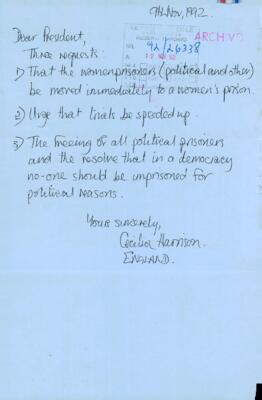 9th Nov, 1992.
ARCHIVO
92/26338
Dear President,
Three requests:
1) That the women prisoners (political and other)
be moved immediately to a women's prison.
2) Urge that trials be speeded up.
3) The freeing of all political prisoners
and the resolve that in a democracy
no-one should be imprisoned for
political reasons.
Yours sincerely,
Cecilia Harrison.
ENGLAND.